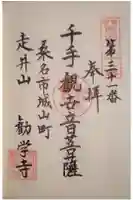 第三十一番
奉拝
千手観世音菩薩
桑名市城山町
走井山
勧学寺